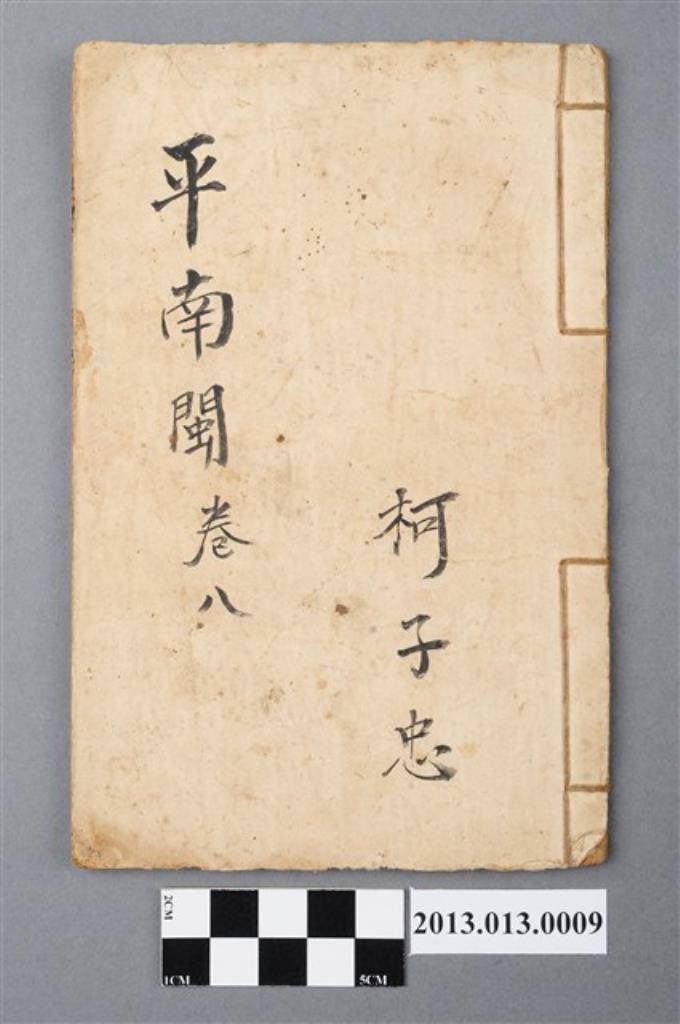 柯子忠
平南閩卷八
2CM
1CM
5CM
2013.013.0009